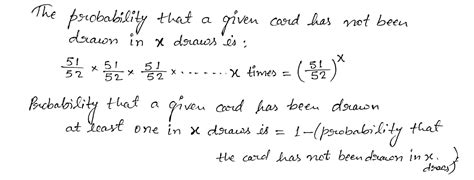 The probability that a given card has not been
drawn in x draws is:
51/52 × 51/52 × 51/52 × ....... x times = (51/52)^x
Probability that a given card has been drawn
at least one in x draws is = 1-(probability that
the card has not been drawn in x.
draws)